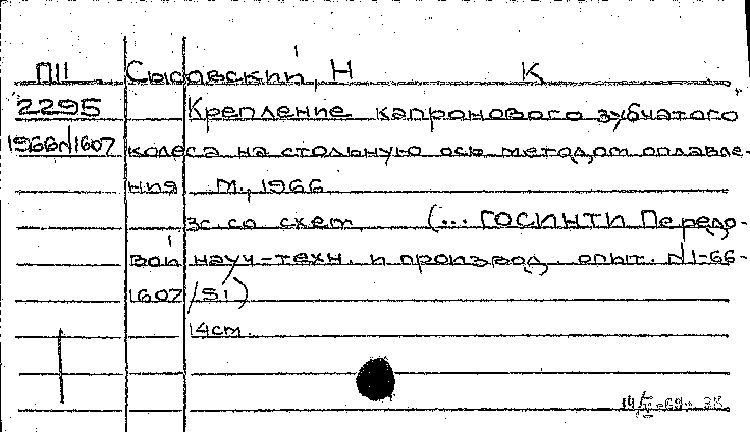 ПII Сысовский, Н К
2295 Крепление капронового зубчатого
1966N1607 колеса на стольную ось методом оплавле-
ния М., 1966
3с. со схем. (... ГОСИНТИ Передо-
вой науч-техн. и производ. опыт. N1-66-
1607/51)
14cm.